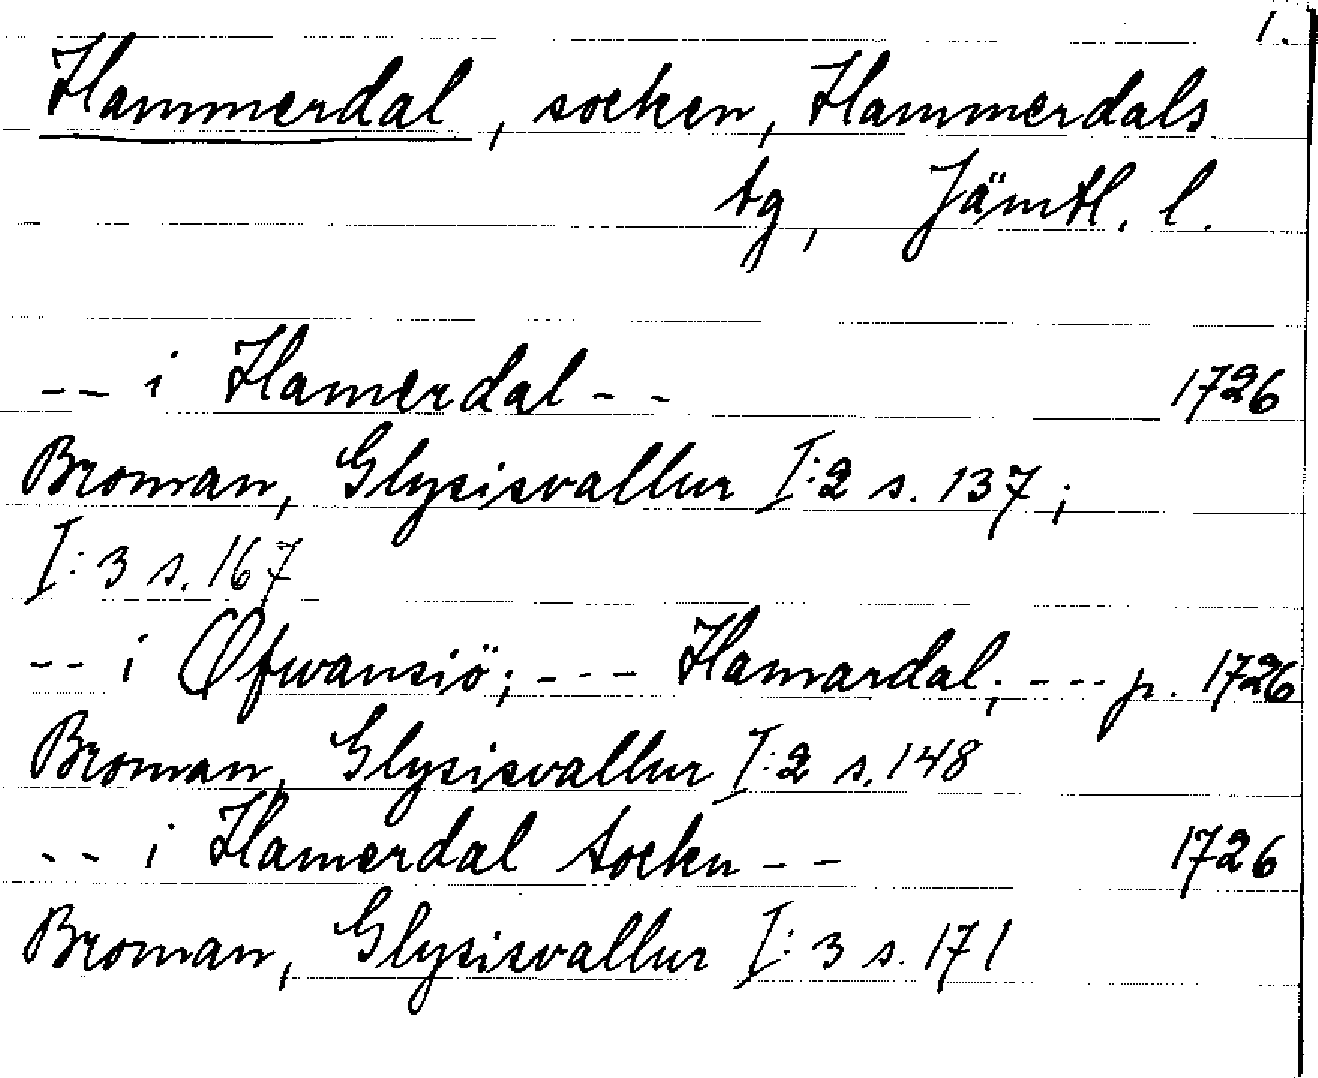 1.
Hammerdal, socken, Hammerdals
tg, Jämtl. l.
-- i Hamerdal -- 1726
Broman, Glysisvallur I:2 s. 137;
I:3 s. 167
-- i Øfwansiö; --- Hamardal; --- p. 1726
Broman, Glysisvallur I:2 s. 148
-- i Hamerdal sockn -- 1726
Broman, Glysisvallur I:3 s. 171